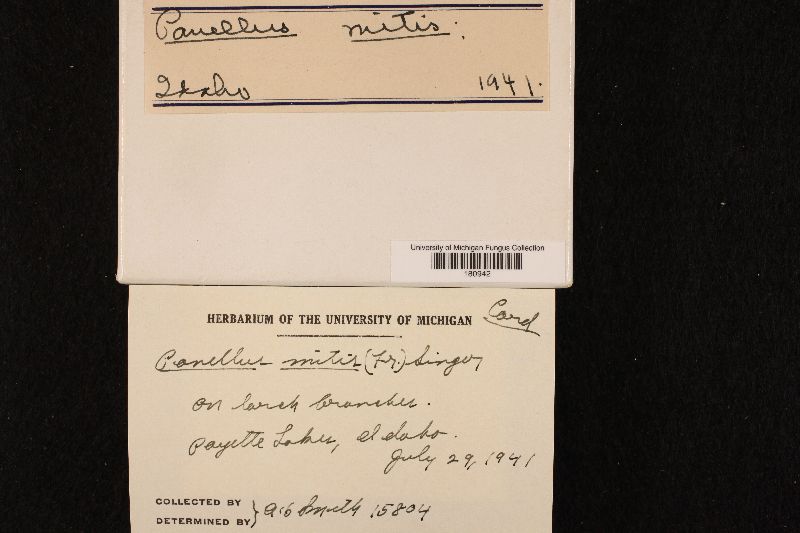 Panellus mitis.
Idaho 1941.
University of Michigan Fungus Collection
180942
HERBARIUM OF THE UNIVERSITY OF MICHIGAN
Card
Panellus mitis (Fr.) Singer
on larch branches.
Payette Lakes, Idaho.
July 29, 1941
COLLECTED BY
DETERMINED BY } A.H. Smith 15804